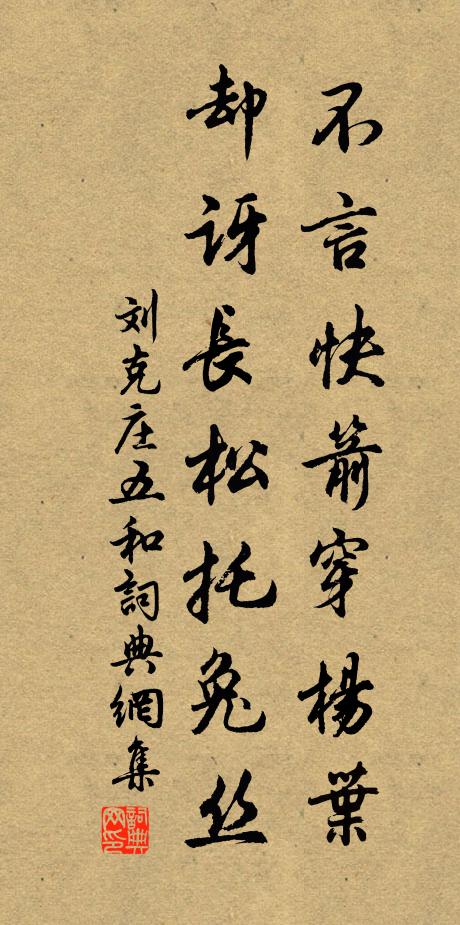 不言快箭穿楊葉
却訝長松托兔丝
刘克庄五和詞典網集
詞典網印